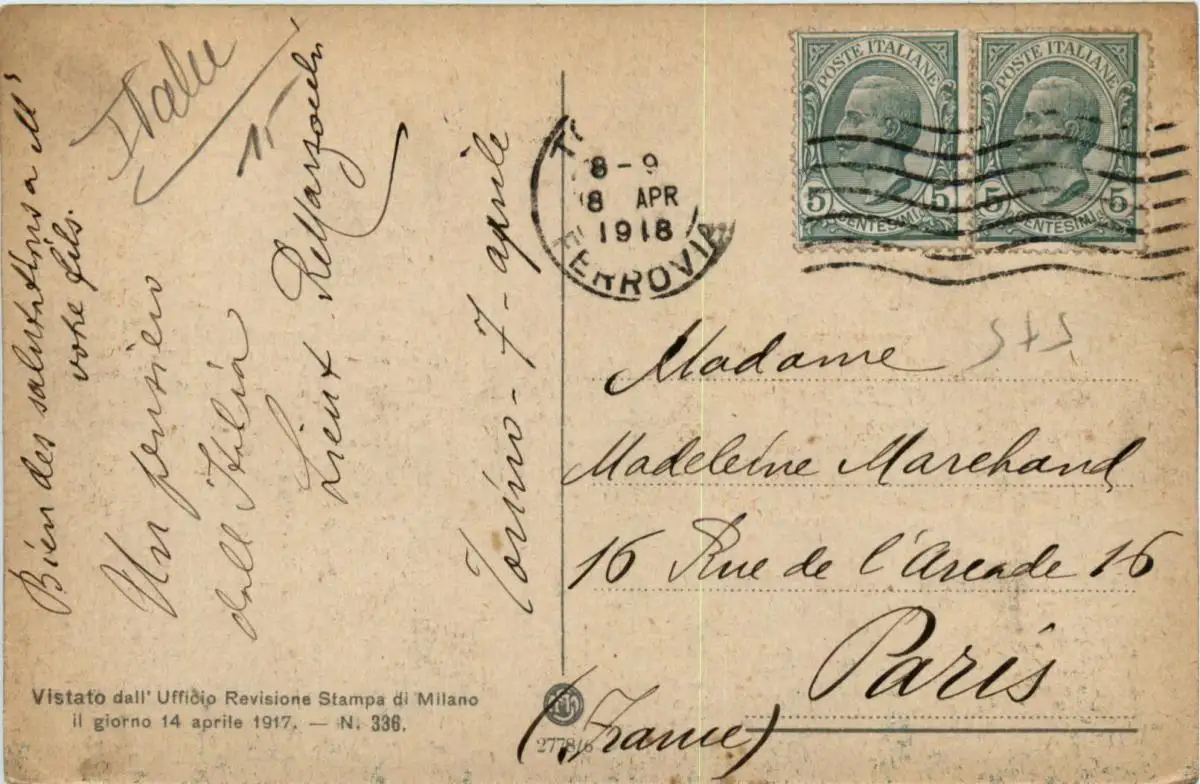 Italie
15
Bien des salutations a M'
votre fils.
Un pensiero
dall Italia
Lieut
Torino - 7 - aprile
8-9
8 APR
1918
FERROVIA
POSTE ITALIANE
5 5
CENTESIMI
POSTE ITALIANE
5 5
CENTESIMI
Madame
Madeleine Marchand
16 Rue de l'Arcade 16
Paris
(France)
Vistato dall' Ufficio Revisione Stampa di Milano
il giorno 14 aprile 1917. — N. 336.
2778/6